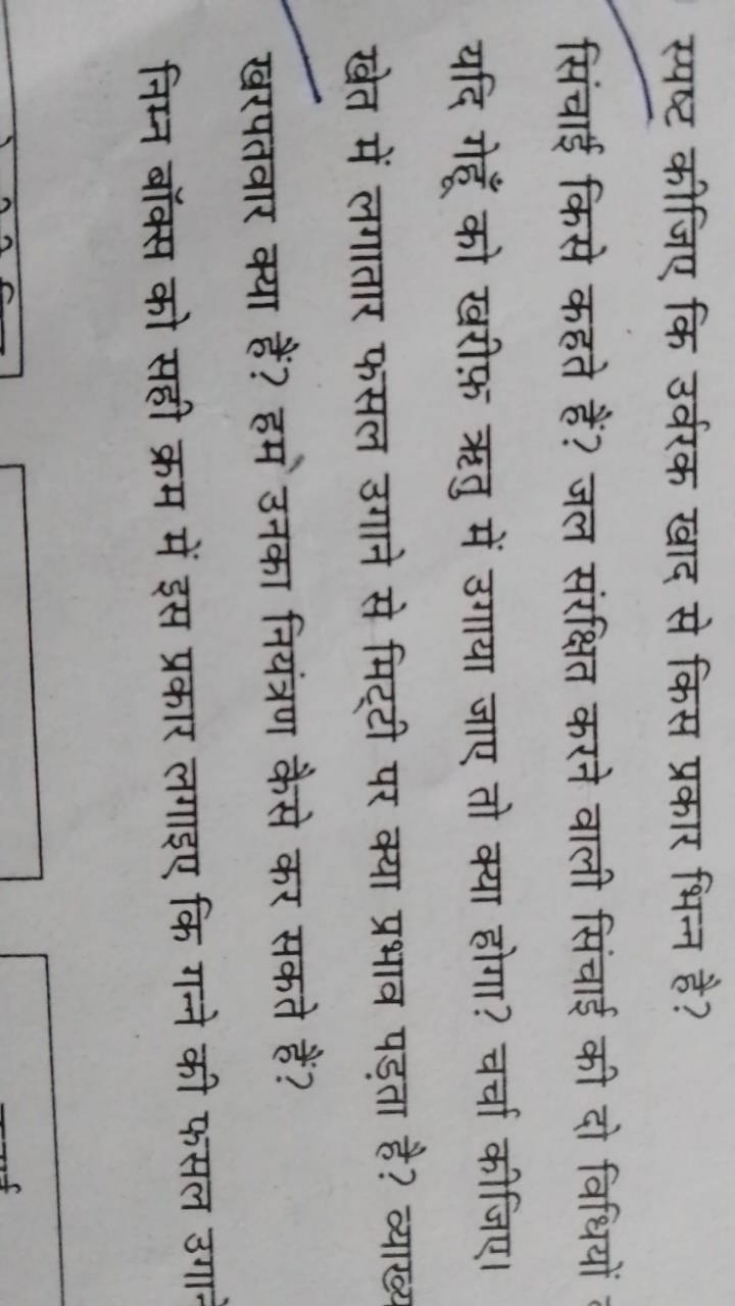 स्पष्ट कीजिए कि उर्वरक खाद से किस प्रकार भिन्न है?
सिंचाई किसे कहते हैं? जल संरक्षित करने वाली सिंचाई की दो विधियों
यदि गेहूँ को खरीफ़ ऋतु में उगाया जाए तो क्या होगा? चर्चा कीजिए।
खेत में लगातार फसल उगाने से मिट्टी पर क्या प्रभाव पड़ता है? व्याख्य
खरपतवार क्या हैं? हम उनका नियंत्रण कैसे कर सकते हैं?
निम्न बॉक्स को सही क्रम में इस प्रकार लगाइए कि गन्ने की फसल उगाने